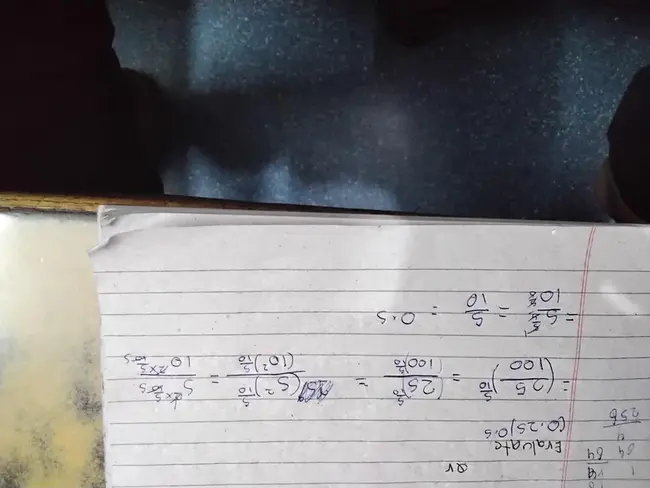 qv
Evaluate
(0.25)0.5
= (25/100)^5/10 = (25)^5/10/(100)^5/10 = (5²)^5/10/(10²)^5/10 = 5^2×5/10/10^2×5/10
= 5/10 = 5/10 = 0.5
1
64 64
4
256